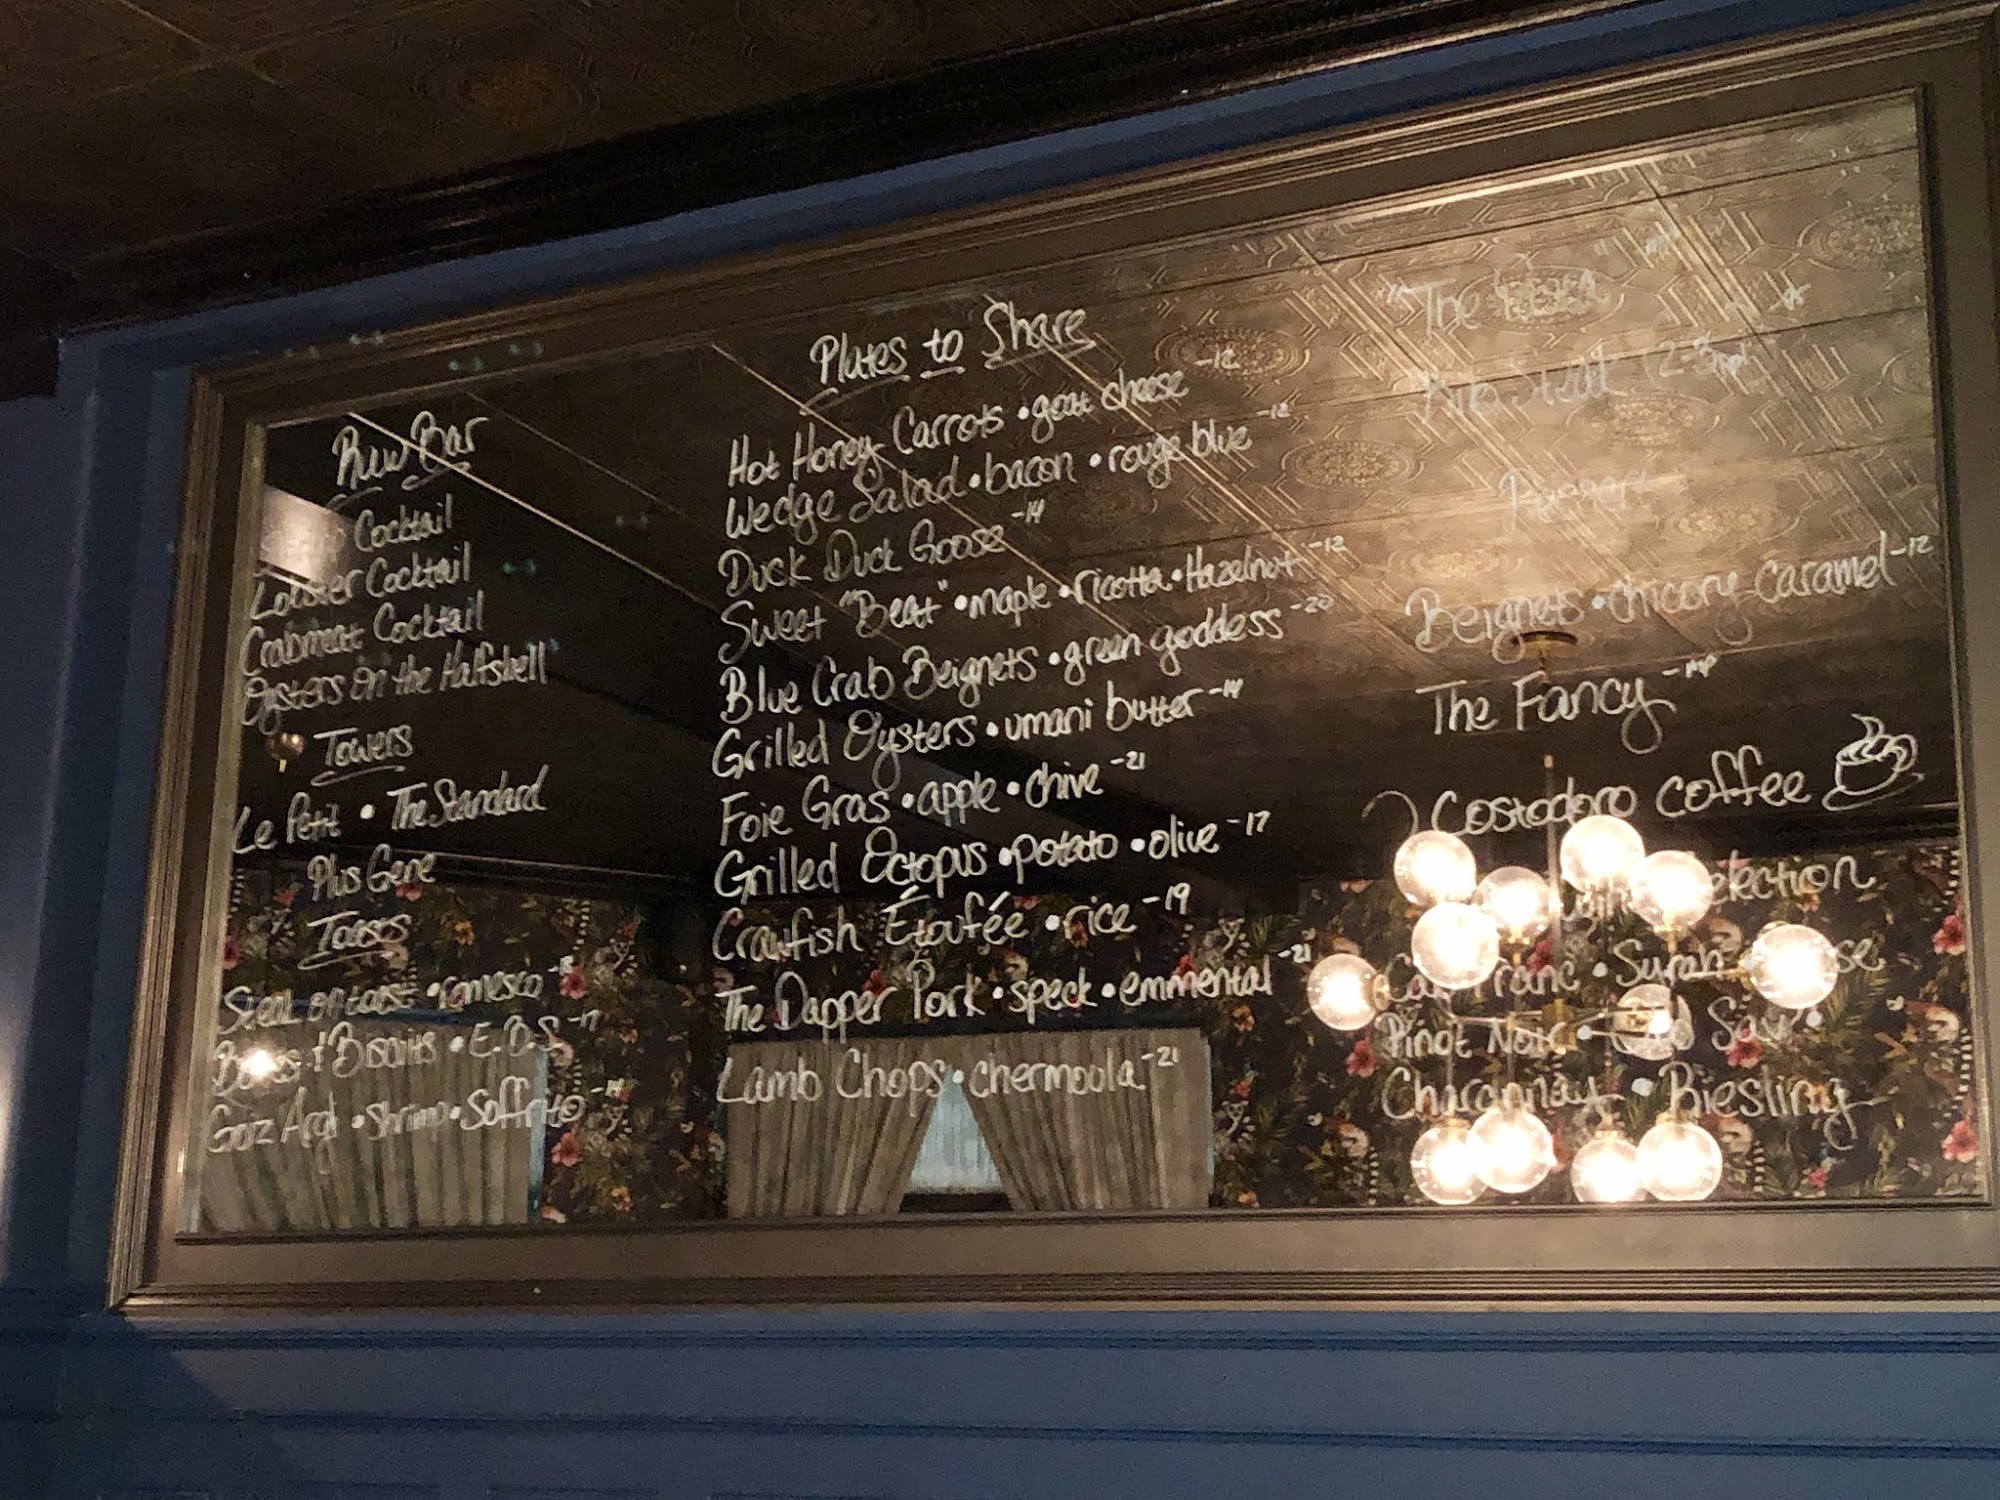 Raw Bar
Cocktail
Lobster Cocktail
Crabmeat Cocktail
Oysters on the Halfshell
Towers
Le Petit • The Standard
Plus Gene
Toasts
Steak on toast • romesco
& Biscuits • E.B.S -17
Shrimp • Soffrito -14
Plates to Share
Hot Honey Carrots • goat cheese -12
Wedge Salad • bacon • rouge blue -12
Duck Duck Goose -14
Sweet "Beat" • maple • ricotta • Hazelnut -12
Blue Crab Beignets • green goddess -20
Grilled Oysters • umani butter -14
Foie Gras • apple • chive -21
Grilled Octopus • potato • olive -17
Crawfish Étoufée • rice -19
The Dapper Pork • speck • emmental -21
Lamb Chops • chermoula -21
"The
Rib Steak (2-3ppl)
Beignets • chicory caramel -12
The Fancy -MP
Costodoro coffee
Franc • Syrah
Pinot Noir • Sav •
Chardonnay • Riesling